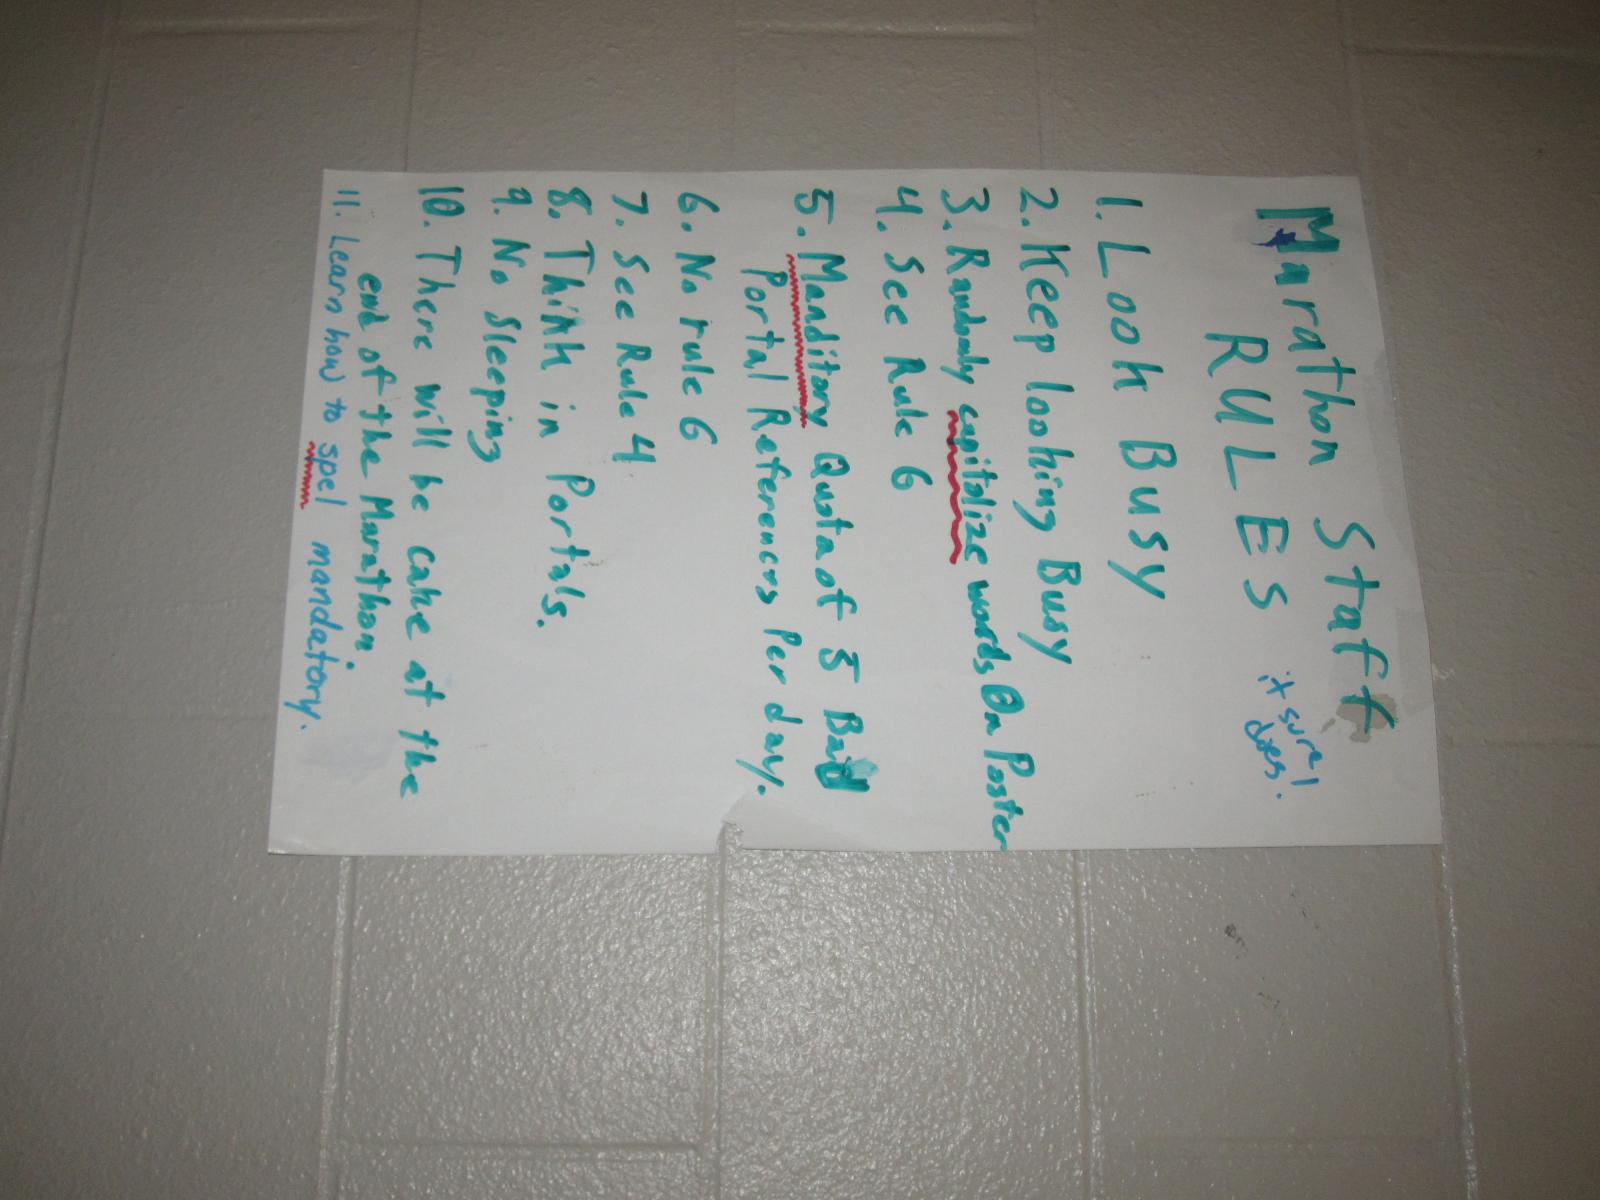 Marathon Staff
RULES
it sure!
does.
1. Look Busy
2. Keep looking Busy
3. Randomly capitolize words On Poster
4. See Rule 6
5. Manditory Quota of 5 Bad
Portal References Per day.
6. No rule 6
7. See Rule 4
8. Think in Portals.
9. No Sleeping
10. There will be cake at the
end of the Marathon.
11. Learn how to spel mandatory.